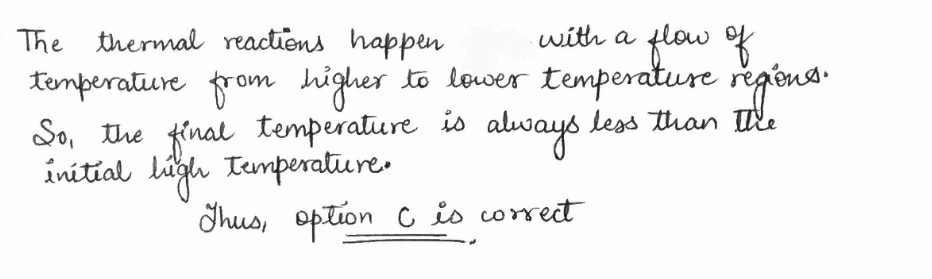 The thermal reactions happen with a flow of
temperature from higher to lower temperature regions.
So, the final temperature is always less than the
initial high temperature.
Thus, option C is correct